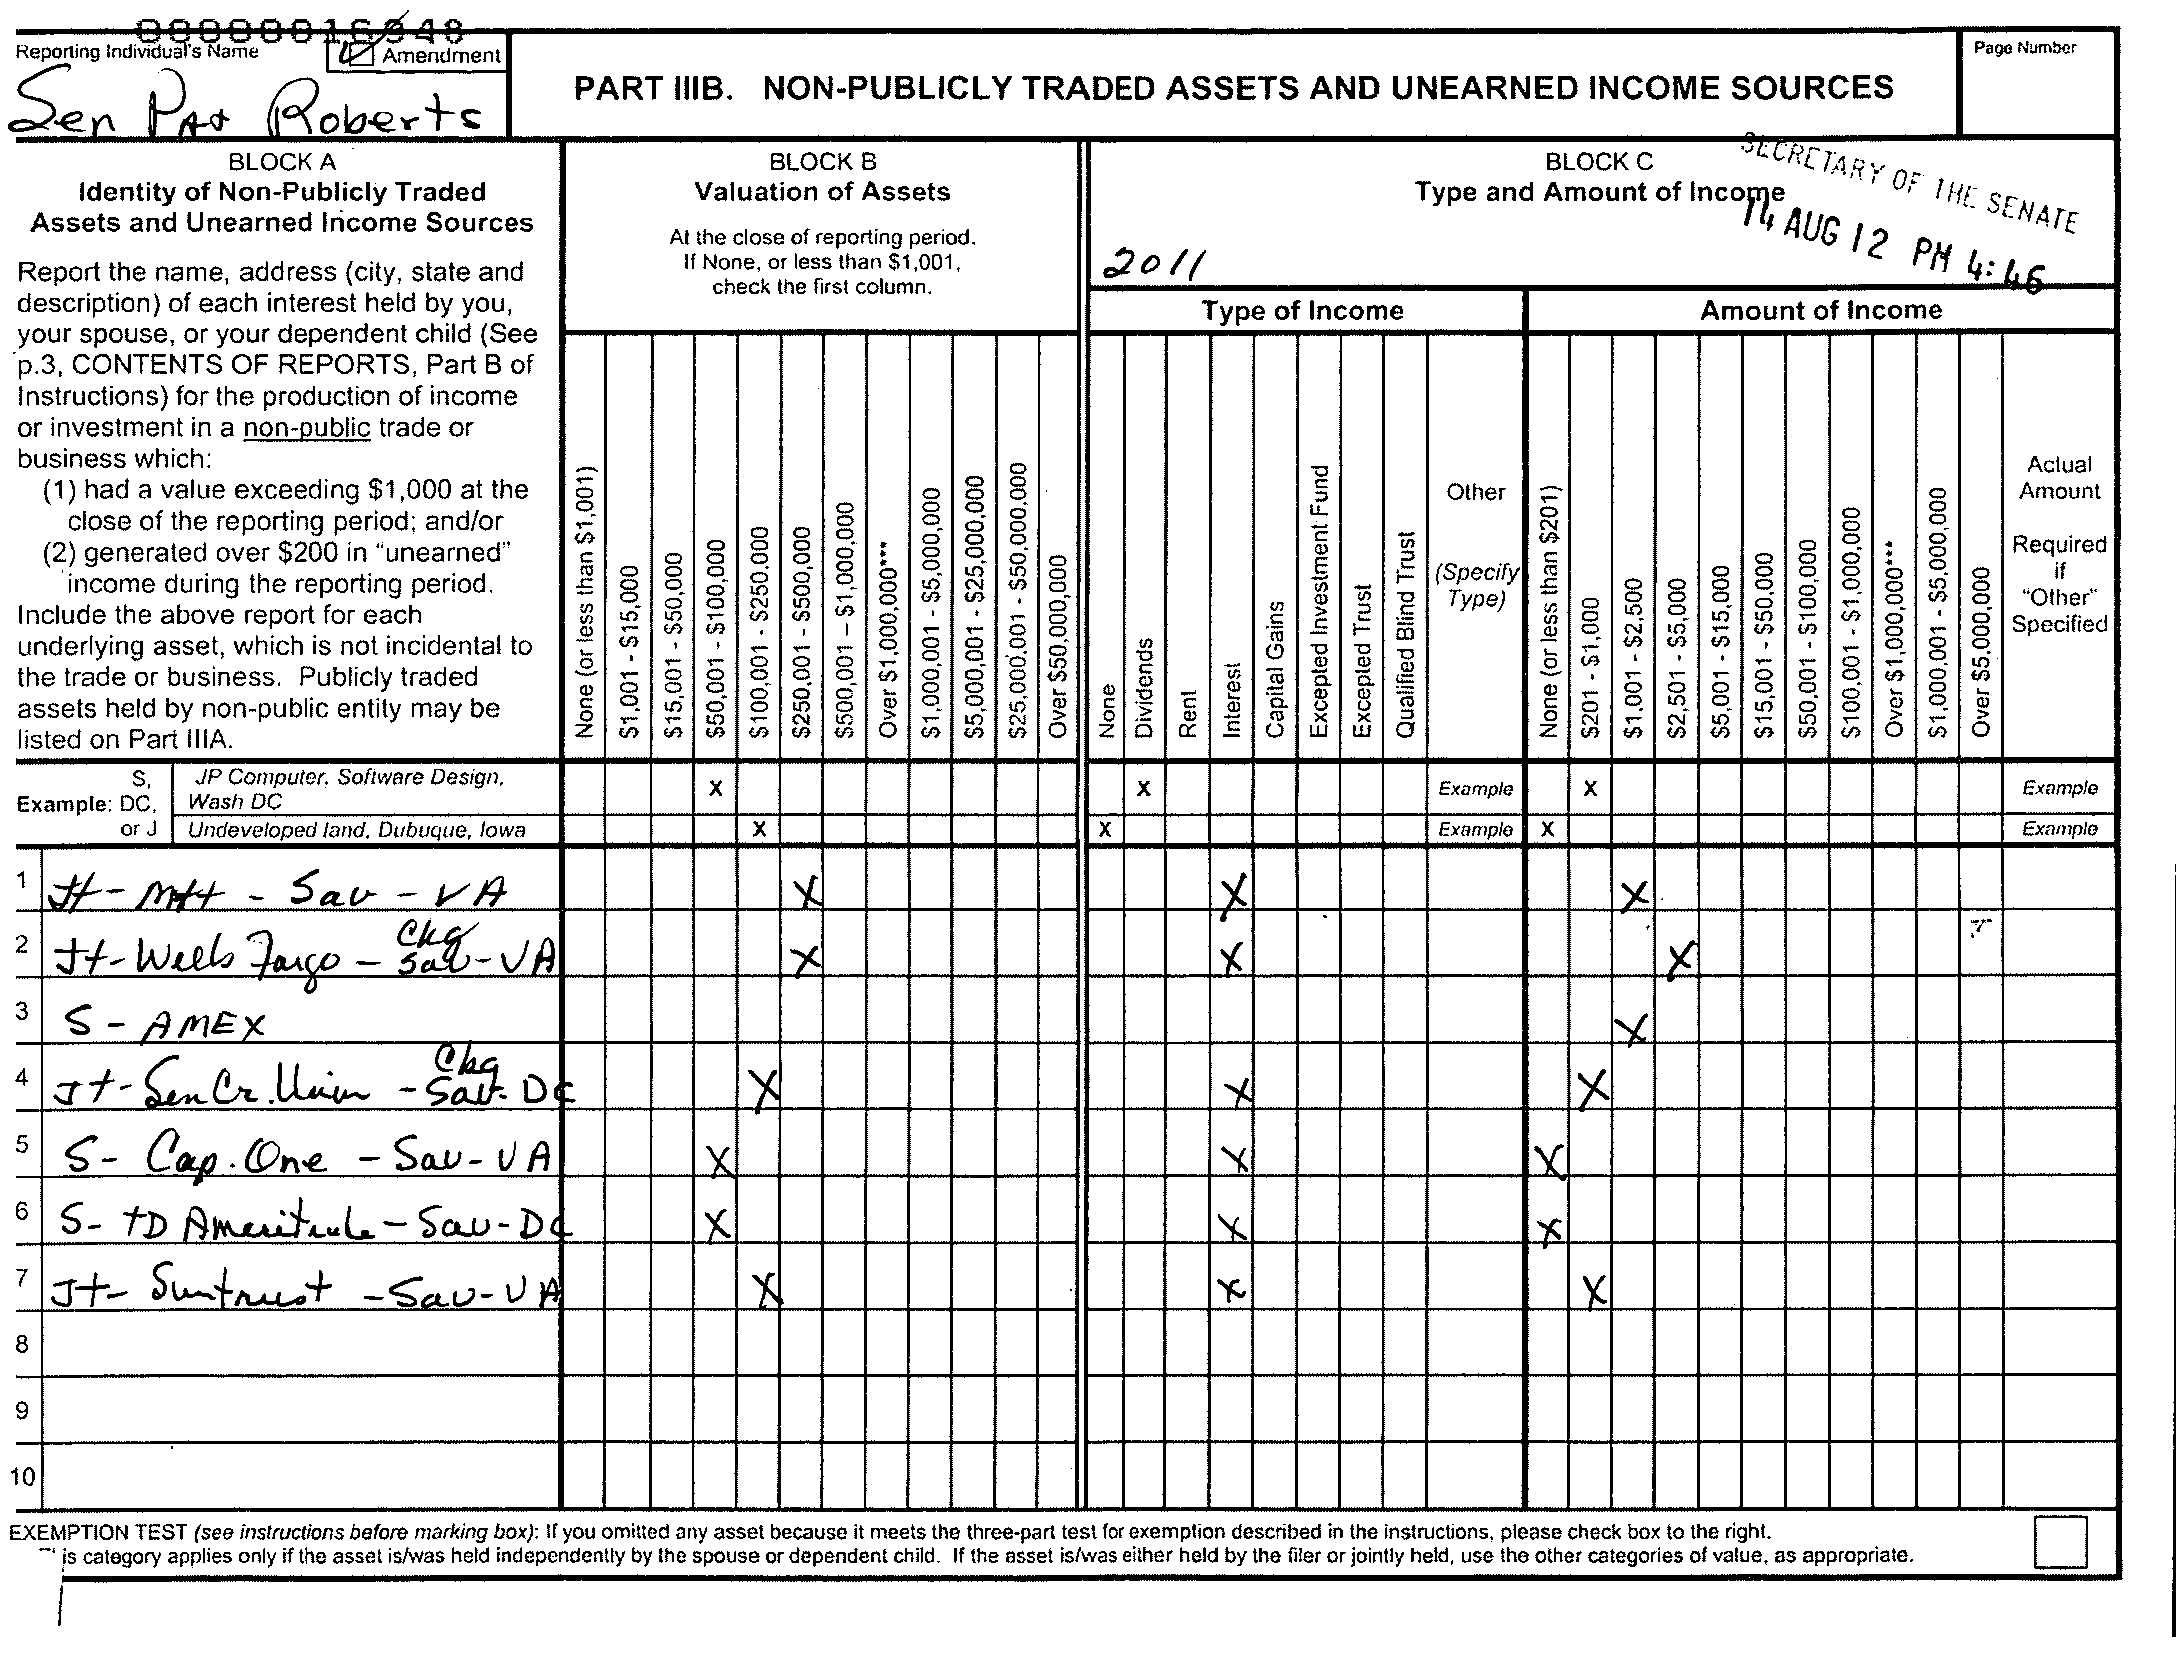 00000016348
Reporting Individual's Name
Amendment
Sen Pat Roberts
PART IIIB. NON-PUBLICLY TRADED ASSETS AND UNEARNED INCOME SOURCES
Page Number
BLOCK A
Identity of Non-Publicly Traded
Assets and Unearned Income Sources
Report the name, address (city, state and
description) of each interest held by you,
your spouse, or your dependent child (See
p.3, CONTENTS OF REPORTS, Part B of
Instructions) for the production of income
or investment in a non-public trade or
business which:
(1) had a value exceeding $1,000 at the
close of the reporting period; and/or
(2) generated over $200 in "unearned"
income during the reporting period.
Include the above report for each
underlying asset, which is not incidental to
the trade or business. Publicly traded
assets held by non-public entity may be
listed on Part IIIA.
BLOCK B
Valuation of Assets
At the close of reporting period.
If None, or less than $1,001,
check the first column.
None (or less than $1,001)
$1,001 - $15,000
$15,001 - $50,000
$50,001 - $100,000
$100,001 - $250,000
$250,001 - $500,000
$500,001 – $1,000,000
Over $1,000,000***
$1,000,001 - $5,000,000
$5,000,001 - $25,000,000
$25,000,001 - $50,000,000
Over $50,000,000
BLOCK C
Type and Amount of Income
SECRETARY OF THE SENATE
14 AUG 12 PM 4:46
2011
Type of Income
Amount of Income
None
Dividends
Rent
Interest
Capital Gains
Excepted Investment Fund
Excepted Trust
Qualified Blind Trust
Other
(Specify
Type)
None (or less than $201)
$201 - $1,000
$1,001 - $2,500
$2,501 - $5,000
$5,001 - $15,000
$15,001 - $50,000
$50,001 - $100,000
$100,001 - $1,000,000
Over $1,000,000***
$1,000,001 - $5,000,000
Over $5,000,000
Actual
Amount
Required
if
"Other"
Specified
Example: S, DC, or J
JP Computer, Software Design,
Wash DC
X X Example X Example
Undeveloped land, Dubuque, Iowa X X Example X Example
1 Jt - - Sav - VA X X X
2 Jt - Wells Fargo - Ckg Sav - VA X X X
3 S - AMEX X
4 Jt - Sen Cr. Union - Ckg Sav - DC X X X
5 S - Cap. One - Sav - VA X X X
6 S - TD Ameritrade - Sav - DC X X X
7 Jt - Suntrust - Sav - VA X X X
8
9
10
EXEMPTION TEST (see instructions before marking box): If you omitted any asset because it meets the three-part test for exemption described in the instructions, please check box to the right.
is category applies only if the asset is/was held independently by the spouse or dependent child. If the asset is/was either held by the filer or jointly held, use the other categories of value, as appropriate.